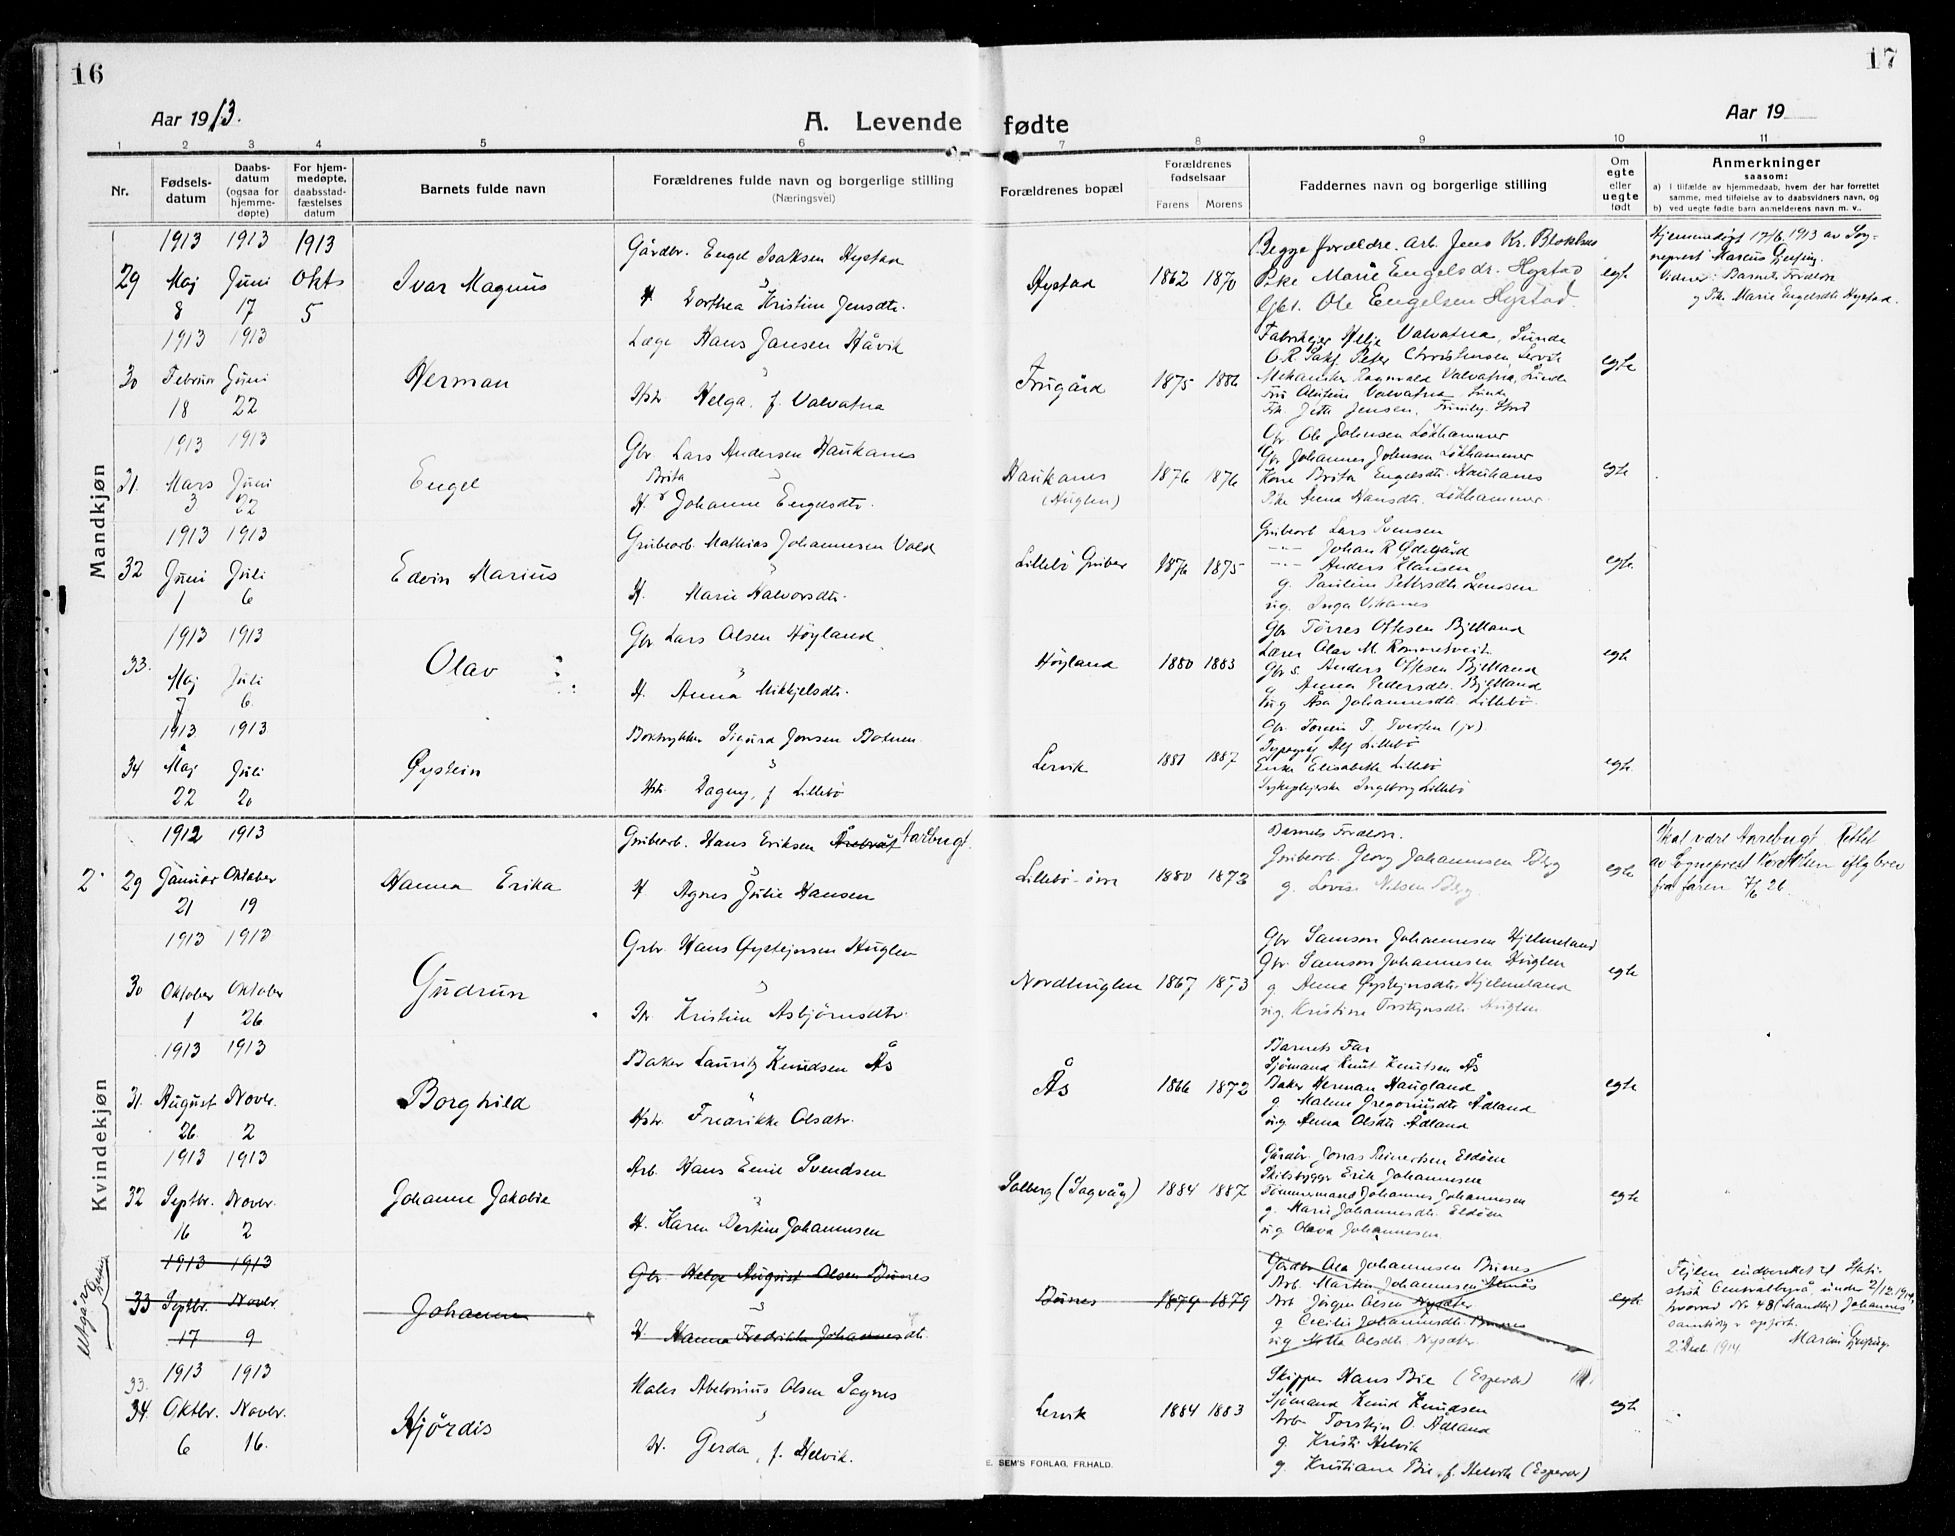 16
17
Aar 1913.
A. Levende fødte
Aar 19
1 2 3 4 5 6 7 8 9 10 11
Nr.
Fødsels-
datum
Daabs-
datum
(ogsaa for
hjemme-
døpte)
For hjem-
medøpte,
daabsstad-
fæstelses
datum
Barnets fulde navn
Forældrenes fulde navn og borgerlige stilling
(Næringsvei)
Forældrenes bopæl
Forældrenes
fødselsaar
Farens Morens
Faddernes navn og borgerlige stilling
Om
egte
eller
uegte
født
Anmerkninger
saasom:
a) i tilfælde av hjemmedaab, hvem der har forrettet
samme, med tilføielse av to daabsvidners navn, og
b) ved uegte fødte barn anmelderens navn m. v..
Mandkjøn
1913 1913 1913
29 Maj Juni Okts
8 17 5
Ivar Magnus
Gårdbr. Engel Isaksen Hystad
H Dorthea Kristine Jensdtr.
Hystad
1862 1870
Begge forældre. Arb. Jens Kr. Blokhus
Pike Marie Engelsdr. Hystad
Gbr. Ole Engelsen Hystad.
egte
Hjemmedøpt 17/6 1913 av Sog-
neprest Marcus Gjessing.
Vidner: Barnets Foreldre
og Pike Marie Engelsdtr Hystad.
1913 1913
30 Februar Juni
18 22
Herman
Læge Hans Jansen Håvik
Hstr Helga, f. Valvatna
Frugård
1875 1886
Fabrikejer Helje Valvatna, Sunde
O.R. Sakf. Peter Christensen Lervik
Mekaniker Ragnvald Valvatna, Sunde
Fru Alvtine Valvatna Sunde
Frk. Jetta Jensen,
egte
1913 1913
31. Mars Juni
3 22
Engel
Gbr. Lars Andersen Haukanes
Brita
H. Johanne Engelsdtr.
Haukanes
(Huglen)
1876 1876
Gbr. Ole Johnsen Løkhammer
Gbr Johannes Johnsen Løkhammer
Kone Brita Engelsdtr. Haukanes
Pike Anna Hansdtr. Løkhammer.
egte
1913 1913
32 Juni Juli
1 6
Edvin Marius
Grubearb. Mathias Johannesen Vold
H. Marie Halvorsdtr.
Lillebö Gruber
1876 1875
Grubearb Lars Svensen
-"- Johan R Ødegård
-"- Anders Klausen
g. Pauline Pettersdtr Svensen
ug. Inga Vikanes
egte
1913 1913
33. Maj Juli
7 6.
Olav
Gbr Lars Olsen Höyland
H. Anna Mikkjelsdtr.
Höyland
1880 1883
Gbr Törres Ottesen Bjelland
Lærer Olav M. Rommetveit
Gbr s. Anders Ottesen Bjelland
g Anna Pedersdtr. Bjelland
ug Åsa Johannesdtr. Lillebö.
egte
1913 1913
34 Maj Juli
22 20
Øystein
Boktrykker Sigurd Jonsen Botnen
Hstr. Dagny, f Lillebö
Lervik
1881 1887
Gbr. Torgeir T. Tvertsen (jr).
Typograf Alf Lillebö
Enke Elisabeth Lillebö
Sykeplejerske Ingeborg Lillebö
egte.
Kvindekjøn
1912 1913
2. 29 Januar Oktober
21 19
Hanna Erika
Grubearb. Hans Eriksen Årebrot Aarbugt.
H Agnes Julie Hansen
Lillebö-övre
1880 1873
Barnets Foreldre.
Grubearb. Georg Johannesen Berg
g. Lovise Nilsen Berg.
egte
Skal være Aarebugt. Rettet
av Sogneprest efter brev
fra faren 7/6 26.
1913 1913
30 Oktober Oktober
1 26
Gudrun
Gbr. Hans Øystejnsen Huglen
Hr. Kristine Asbjörnsdtr.
Nordhuglen
1867 1873
Gbr Samson Johannesen Hjelmeland
Gbr. Samson Johannesen Huglen
g Anna Øystejnsdtr. Hjelmeland
ug. Kristine Torstejnsdtr. Huglen
egte
1913 1913
31. August Novbr.
26. 2
Borghild
Baker Lauritz Knudsen Ås
Hstr. Fredrikke Olsdtr.
Ås
1866 1872
Barnets Far
Sjömand Knut Knutsen Ås
Baker Herman Haugland
g. Malene Gregoriusdtr Ådland
ug Anna Olsdtr Ådland
egte
1913 1913
32 Septbr. Novbr.
16 2
Johanne Jakobie
Arb. Hans Emil Svendsen
H. Karen Bertine Johannesen
Solberg (Sagvåg)
1884 1887
Gårdbr. Jonas Reinertsen Eldöen
Skibsbygger Erik Johannesen
Tömmermand Johannes Johannesen
g. Marie Johannesdtr. Eldöen
ug Olava Johannesen
egte
Utgår Gjessing
1913 1913
33 Septbr. Novbr.
17 9
Johanne
Gbr. Helge August Olsen Bunes
H. Hanna Fredrikke Johannesdtr.
Bunes
1879 1879
Gårdbr Ola Johannesen Bunes
Arb. Martin Johannesen
Arb Jörgen Olsen Nysæter
g Cecilie Johannesdtr. Bunes
ug Netta Olsdtr. Nysæter
egte
Fejlen indberettet til Stati-
stisk Centralbyrå under 2/12 1914,
hvorved No 48 (Mandkj) Johannes
samtidig er opfört.
2. Decb. 1914 Marcus Gjessing.
1913 1913
33.
34. Oktbr. Novbr.
6 16.
Hjördis
Maler Abelonius Olsen Sagnes
H. Gerda, f. Helvik.
Lervik
1884 1883
Skipper Hans Bie (Esperø)
Sjömand Knud Knudsen
Arb Torstejn O. Ådland
g. Kristi Helvik
g. Kristiane Bie, f Helvik (Esperø)
egte
E. SEM'S FORLAG, FR.HALD.